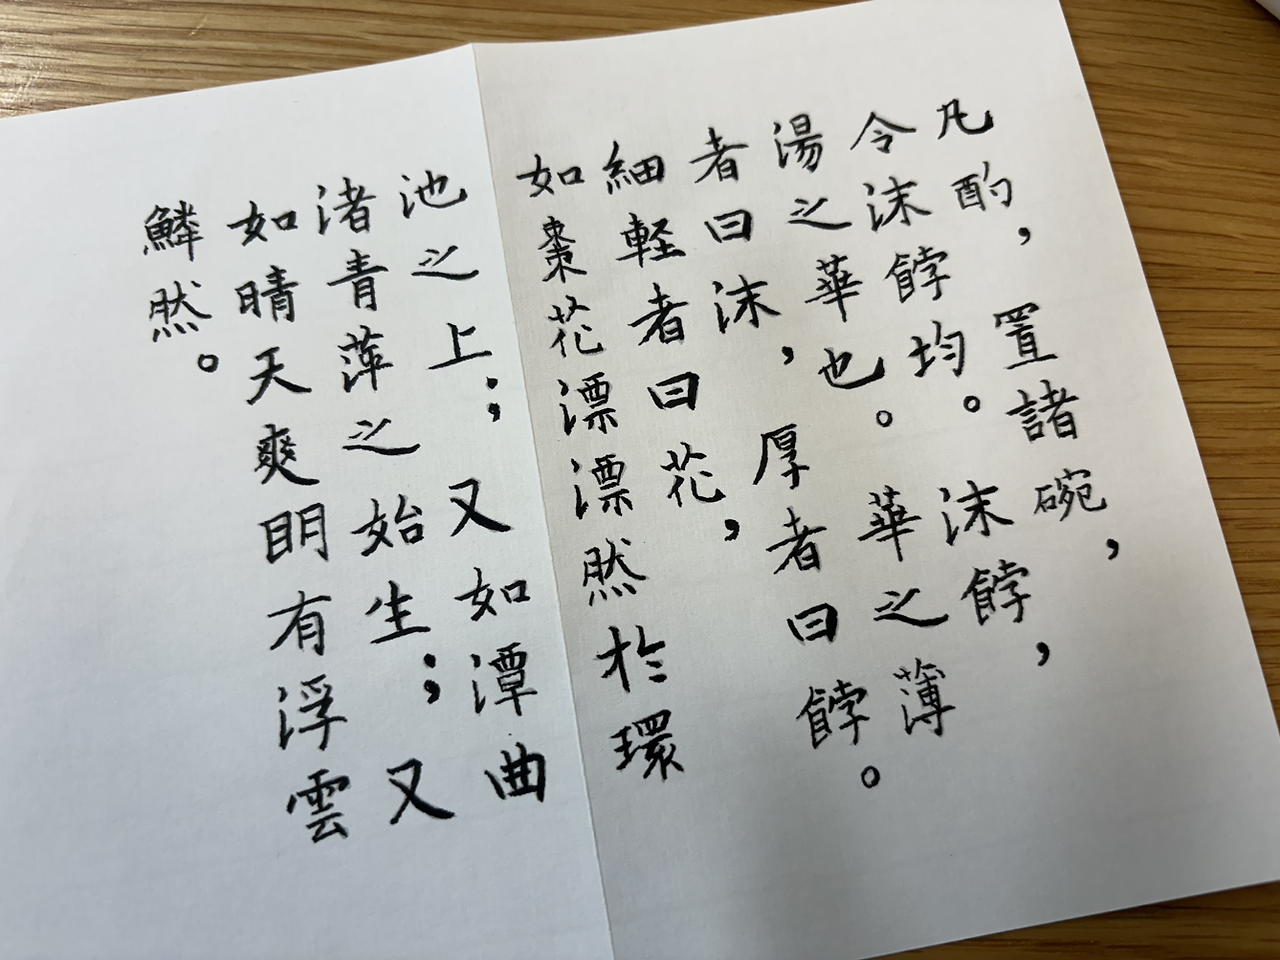 凡酌，置諸碗，
令沫餑均。沫餑，
湯之華也。華之薄
者曰沫，厚者曰餑。
細軽者曰花，
如棗花漂漂然於環
池之上；又如潭曲
渚青萍之始生；又
如晴天爽明有浮雲
鱗然。